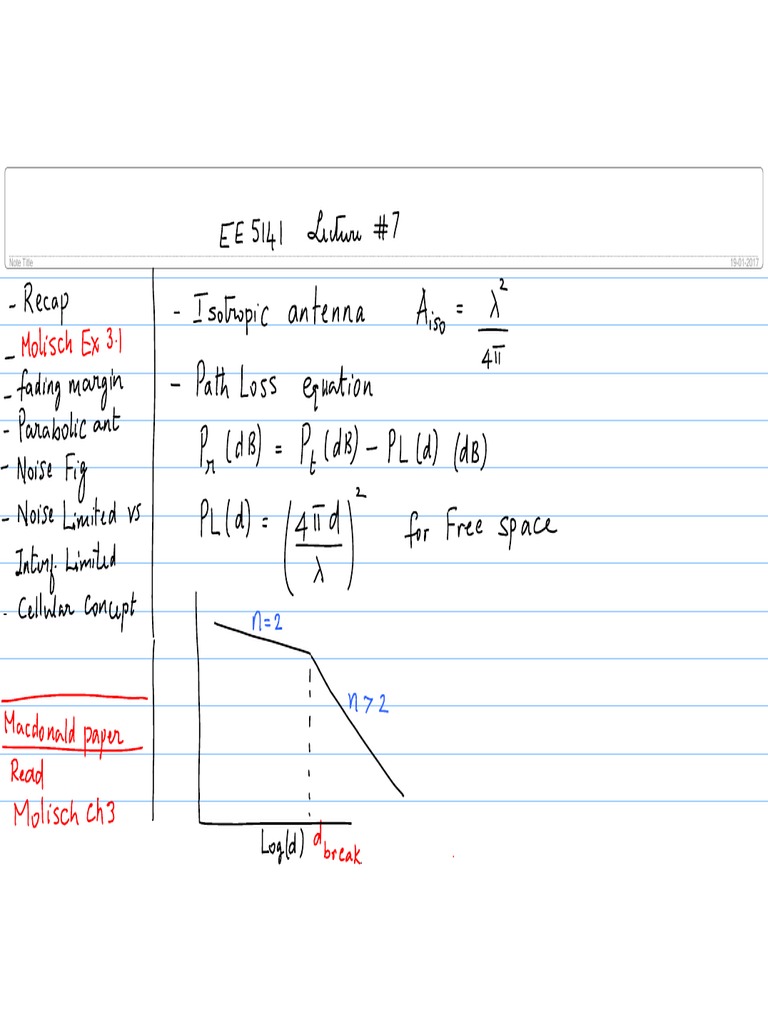 EE 5141 Lecture #7
Note Title
19-01-2017
- Recap
- Molisch Ex 3.1
- fading margin
- Parabolic ant
- Noise Fig
- Noise Limited vs
Interf. Limited
- Cellular Concept
Macdonald paper
Read
Molisch Ch3
- Isotropic antenna A_iso = λ² / 4π
- Path Loss equation
P_r (dB) = P_t (dB) - PL(d) (dB)
PL(d) = (4πd / λ)² for Free space
n=2
n>2
Log(d) d_break